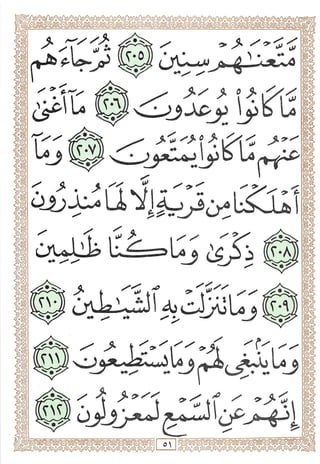 مَّتَّعۡنَٰهُمۡ سِنِينَ ٢٠٥ ثُمَّ جَآءَهُم
مَّا كَانُوا۟ يُوعَدُونَ ٢٠٦ مَآ أَغۡنَىٰ
عَنۡهُم مَّا كَانُوا۟ يُمَتَّعُونَ ٢٠٧ وَمَآ
أَهۡلَكۡنَا مِن قَرۡيَةٍ إِلَّا لَهَا مُنذِرُونَ
٢٠٨ ذِكۡرَىٰ وَمَا كُنَّا ظَٰلِمِينَ
٢٠٩ وَمَا تَنَزَّلَتۡ بِهِ ٱلشَّيَٰطِينُ
٢١٠ وَمَا يَنۢبَغِى لَهُمۡ وَمَا يَسۡتَطِيعُونَ ٢١١
إِنَّهُمۡ عَنِ ٱلسَّمۡعِ لَمَعۡزُولُونَ ٢١٢
٥١